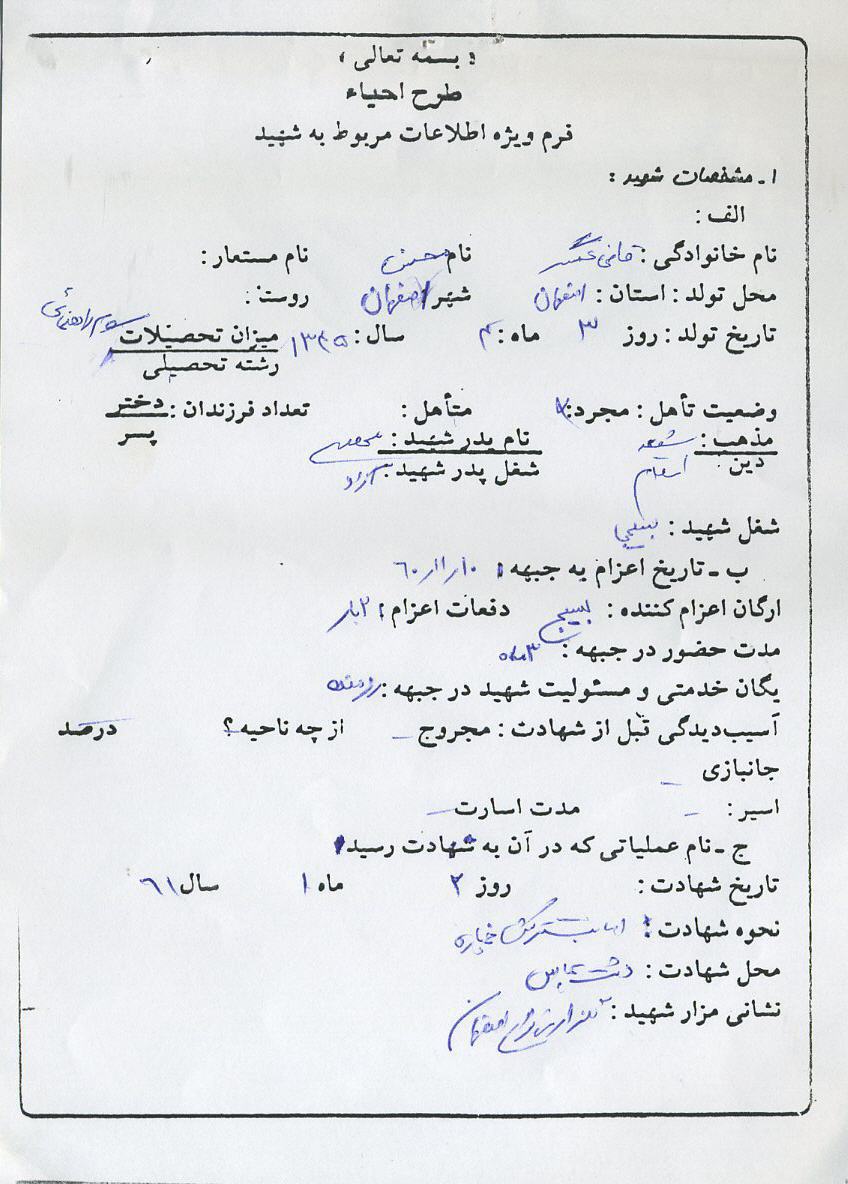 « بسمه تعالی »
طرح احیاء
فرم ویژه اطلاعات مربوط به شهید
۱ـ مشخصات شهید :
الف :
نام خانوادگی : قاضی عسگر نام حسن نام مستعار :
محل تولد : استان : اصفهان شهر اصفهان روستا :
تاریخ تولد : روز ۳ ماه : ۴ سال : ۱۳۴۵ میزان تحصیلات سوم راهنمائی
رشته تحصیلی
وضعیت تأهل : مجرد : متأهل : تعداد فرزندان : دختر
پسر
مذهب : شیعه نام پدر شهید :
دین : اسلام شغل پدر شهید : آزاد
شغل شهید : بسیجی
ب ـ تاریخ اعزام به جبهه : ۱۰ر۱۱ر۶۰
ارگان اعزام کننده : بسیج دفعات اعزام : ۲بار
مدت حضور در جبهه : ۳ماه
یگان خدمتی و مسئولیت شهید در جبهه : رزمنده
آسیب‌دیدگی قبل از شهادت : مجروح ـ از چه ناحیه ؟ درصد
جانبازی ـ
اسیر : ـ مدت اسارت ـ
ج ـ نام عملیاتی که در آن به شهادت رسید
تاریخ شهادت : روز ۲ ماه ۱ سال ۶۱
نحوه شهادت : اصابت ترکش خمپاره
محل شهادت : دشت عباس
نشانی مزار شهید : گلزار شهدای اصفهان